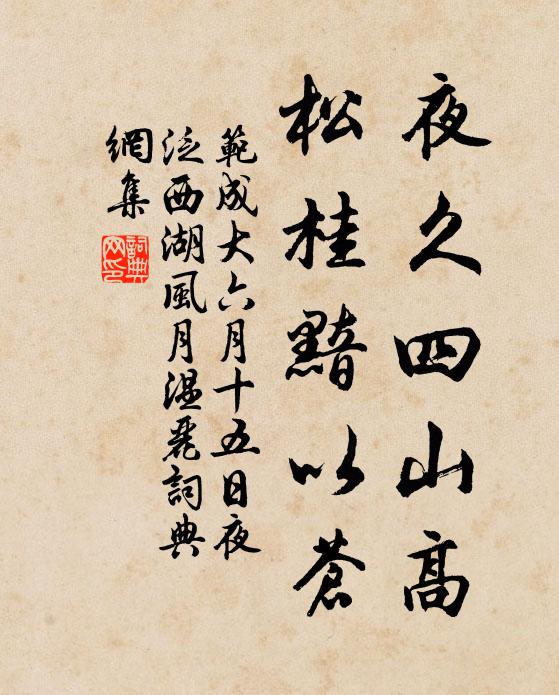 夜久四山高
松桂黯以蒼
範成大六月十五日夜
泛西湖風月温麗詞典
網集
詞典網印